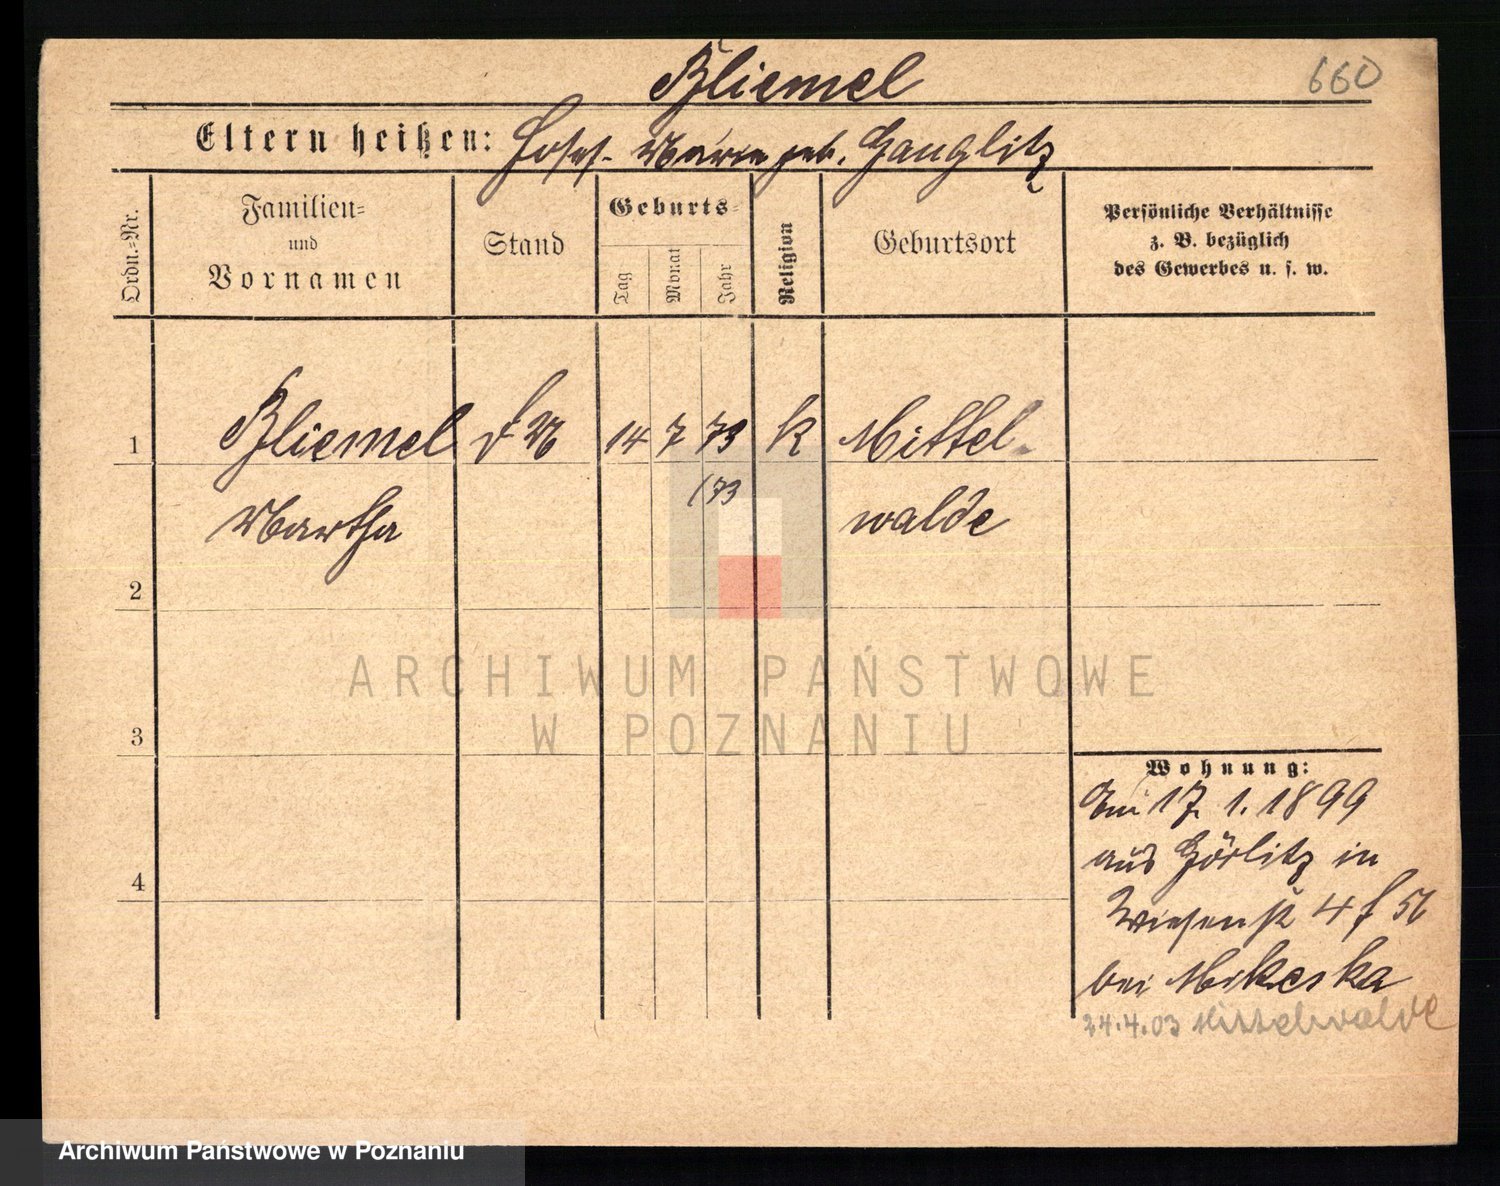 Bliemel
660
Eltern heißen: Josef. Marie geb. Gauglitz
Ordn.-Nr.
Familien-
und
Vornamen
Stand
Geburts-
Tag
Monat
Jahr
Religion
Geburtsort
Persönliche Verhältnisse
z. B. bezüglich
des Gewerbes u. s. w.
1
Bliemel
14 7 73 k Mittel-
(73
Martha
walde
2
3
4
Wohnung:
17. 1. 1899
aus Görlitz in
Wiesenstr 4
bei Mikeska
24.4.03 Mittelwalde
ARCHIWUM PAŃSTWOWE
W POZNANIU
Archiwum Państwowe w Poznaniu